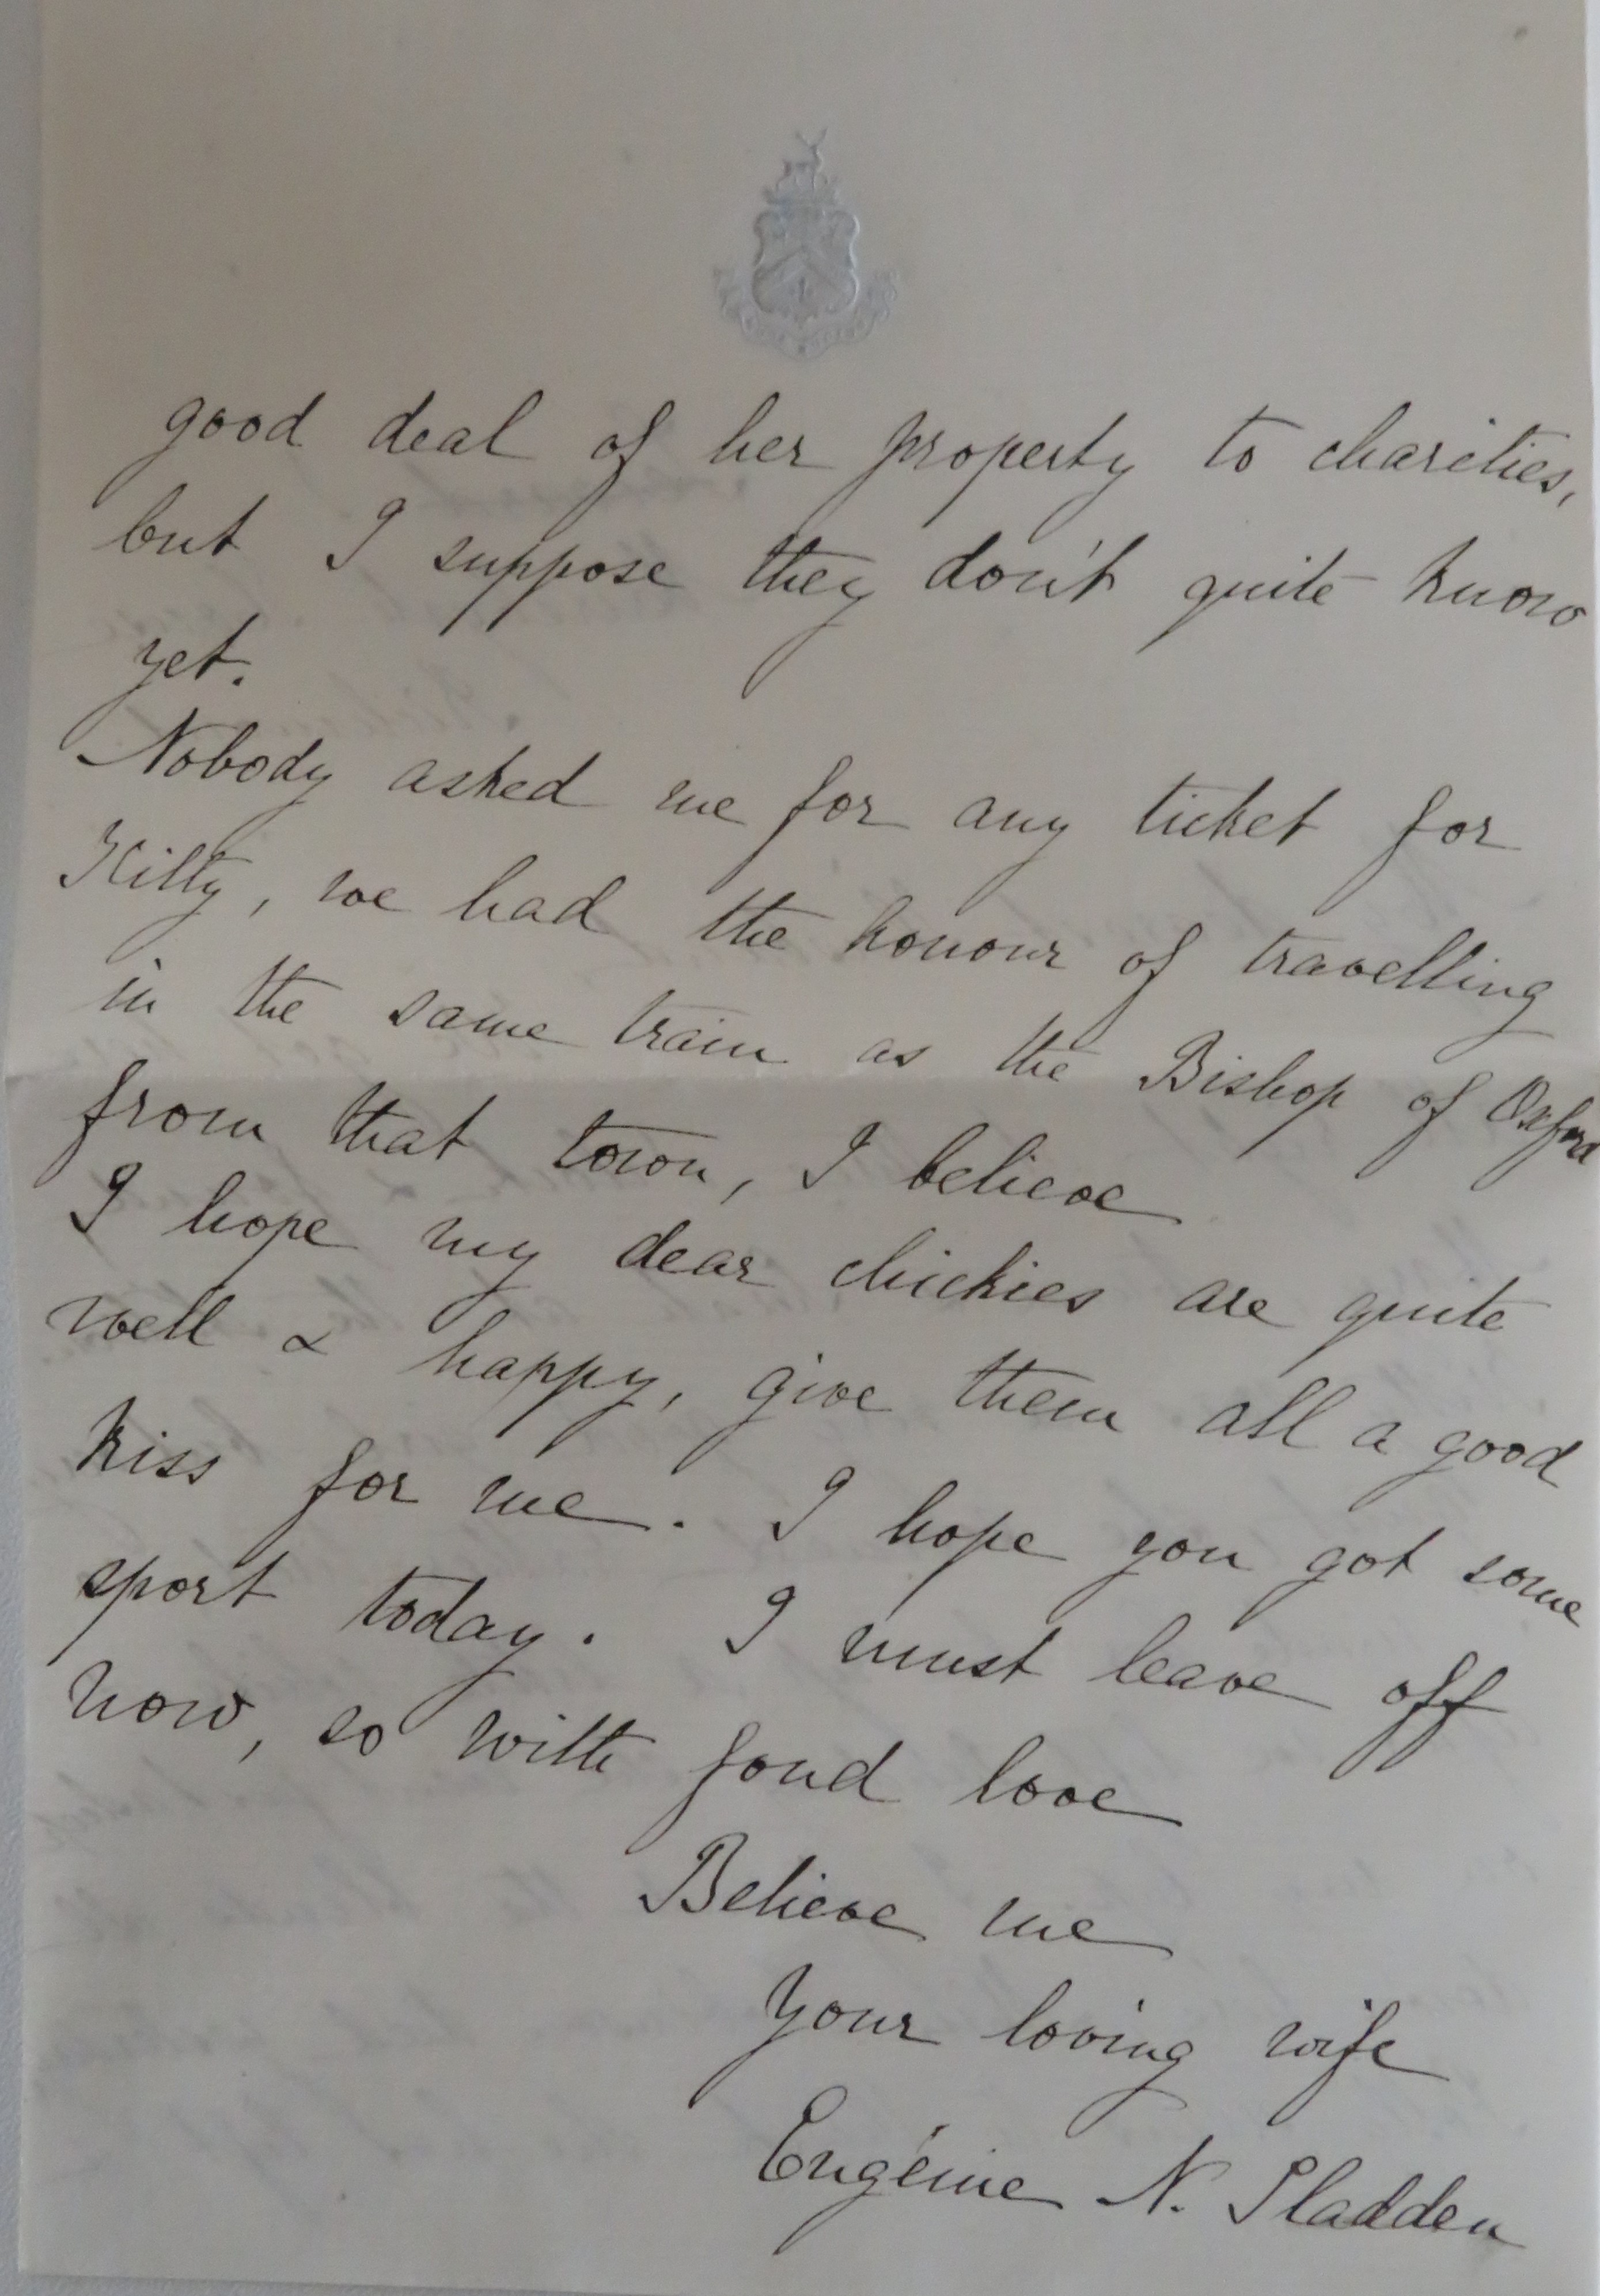 good deal of her property to charities,
but I suppose they don't quite know
yet.
Nobody asked me for any ticket for
Kitty, we had the honour of travelling
in the same train as the Bishop of Oxford
from that town, I believe
I hope my dear chickies are quite
well & happy, give them all a good
kiss for me. I hope you got some
sport today. I must leave off
now, so with fond love
Believe me
Your loving wife
Eugénie N. Sladden